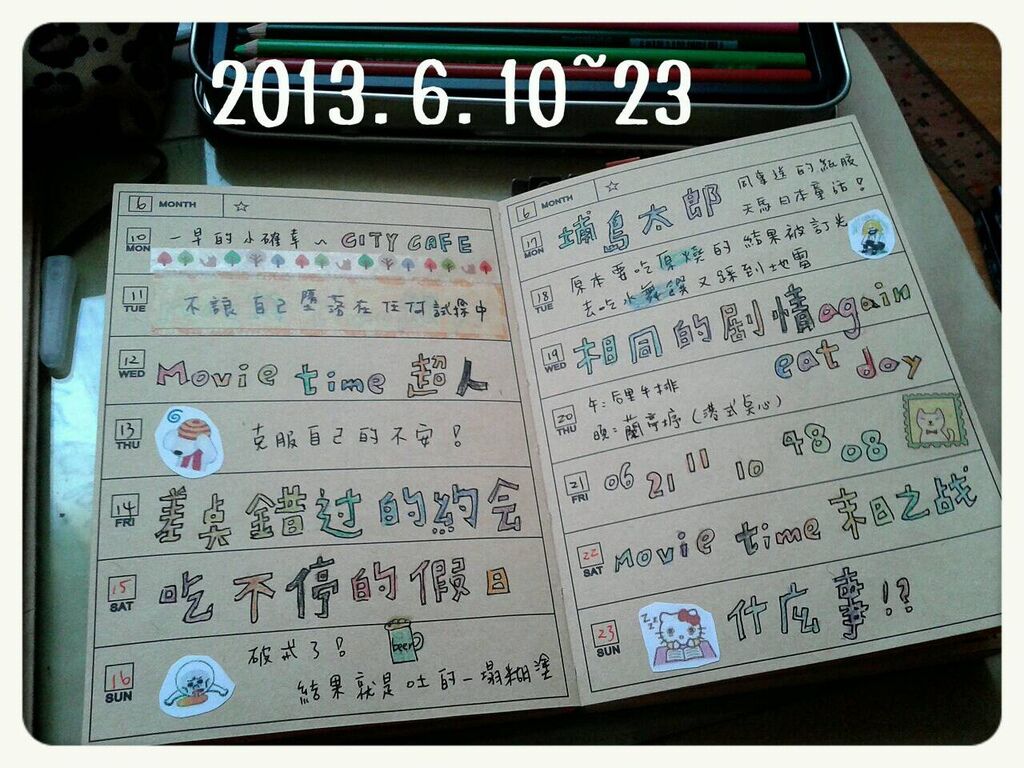 2013.6.10~23
6 MONTH ☆
10 MON 一早的小確幸～CITY CAFE
11 TUE 不讓自己墮落在任何試探中
12 WED Movie time 超人
13 THU 克服自己的不安!
14 FRI 差点錯过的約会
15 SAT 吃不停的假日
16 SUN 破戒了!
beer
結果就是吐的一塌糊塗
6 MONTH ☆
17 MON 埔島太郎
同事送的紙膠
天馬日本童話!
18 TUE 原本要吃原燒的結果被訂光
去吃小蒙饌又踩到地雷
19 WED 相同的劇情again
eat day
20 THU 午:后里牛排
晚:蘭亭序(港式点心)
21 FRI 06 21 11 10 48 08
22 SAT Movie time 末日之战
23 SUN 什麼事!?
zzz